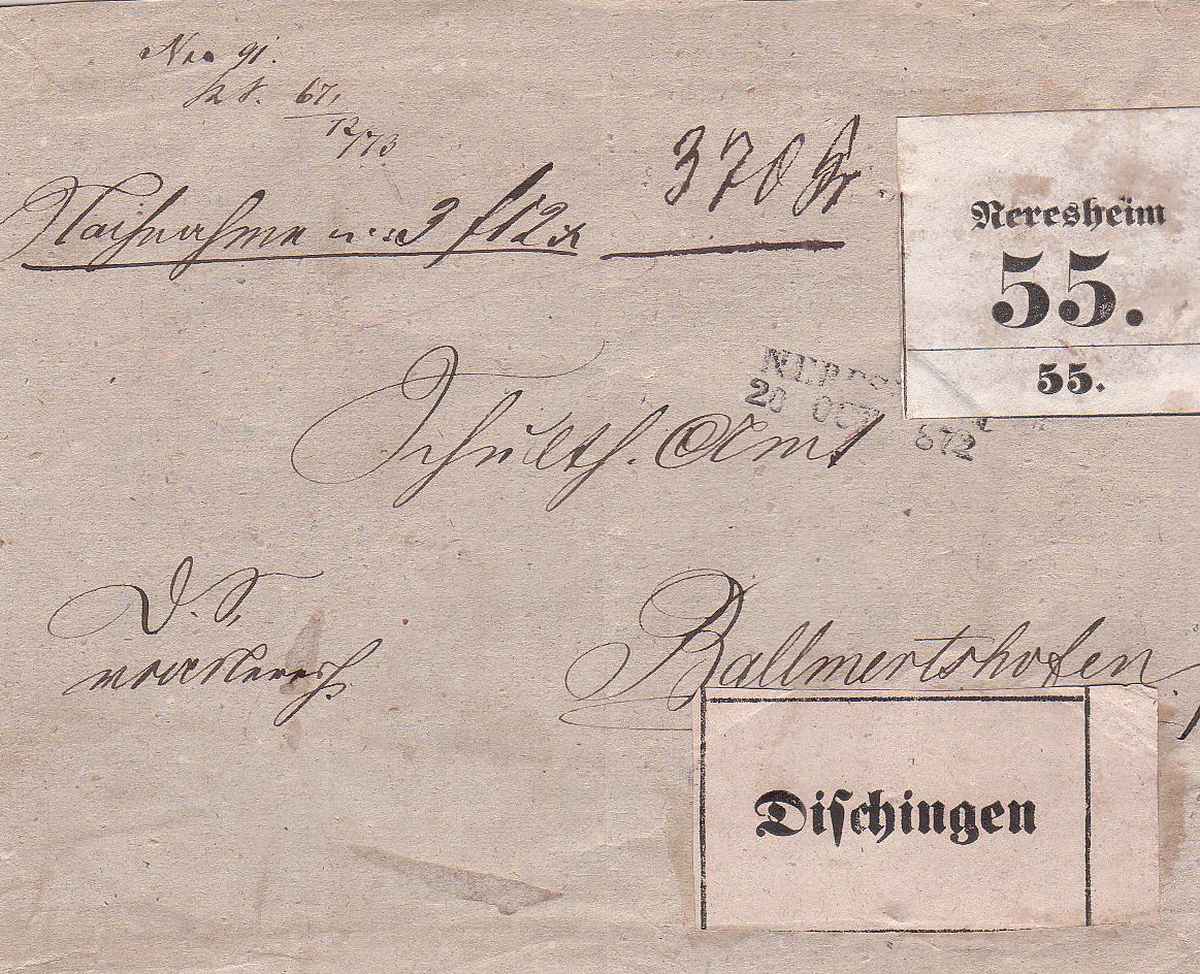 Nro 91.
67,
12/73
370 Gr
Nachnahme 3 f 12 x
Neresheim
55.
55.
NERES
20 OCT 872
Schulth. Amt
D. S.
Ballmertshofen
Dischingen